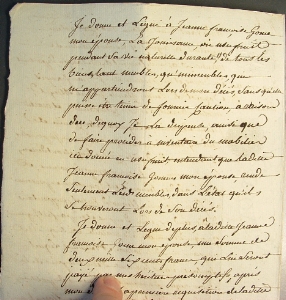 Je donne et Legue à Jeanne françoise Gonon
mon épouse, La Jouissance, ou usufruit
pendant sa vie naturelle durante, de tous les
biens tant meubles, qu'immeubles, que
m'appartiendront Lors de mon décés, sans qu'elle
puisse être tenue de fournir Caution
de quoy Je La dispense, ainsi que
de faire procéder à inventaire du mobilier
en usufruit entendant que ladite
Jeanne françoise Gonon mon épouse rende
Seulement Lesd. meubles, dans L'état qu'ils
se trouveront Lors de Son décés.
Je donne et Legue de plus, à ladite Jeanne
françoise mon épouse, une Somme de
mille francs, qui Lui seront
payé par mon héritier après
mon